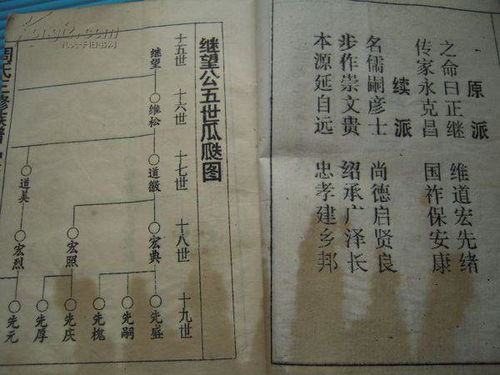 原派
之命曰正继 维道宏先绪
传家永克昌 国祚保安康
续派
名儒嗣彦士 尚德启贤良
步作崇文贵 绍承广泽长
本源延自远 忠孝建乡邦
继望公五世瓜瓞图
十五世 十六世 十七世 十八世 十九世
继望
维松
道徽
道昊
宏典
宏照
宏烈
先盛
先嗣
先槐
先庆
先厚
先元